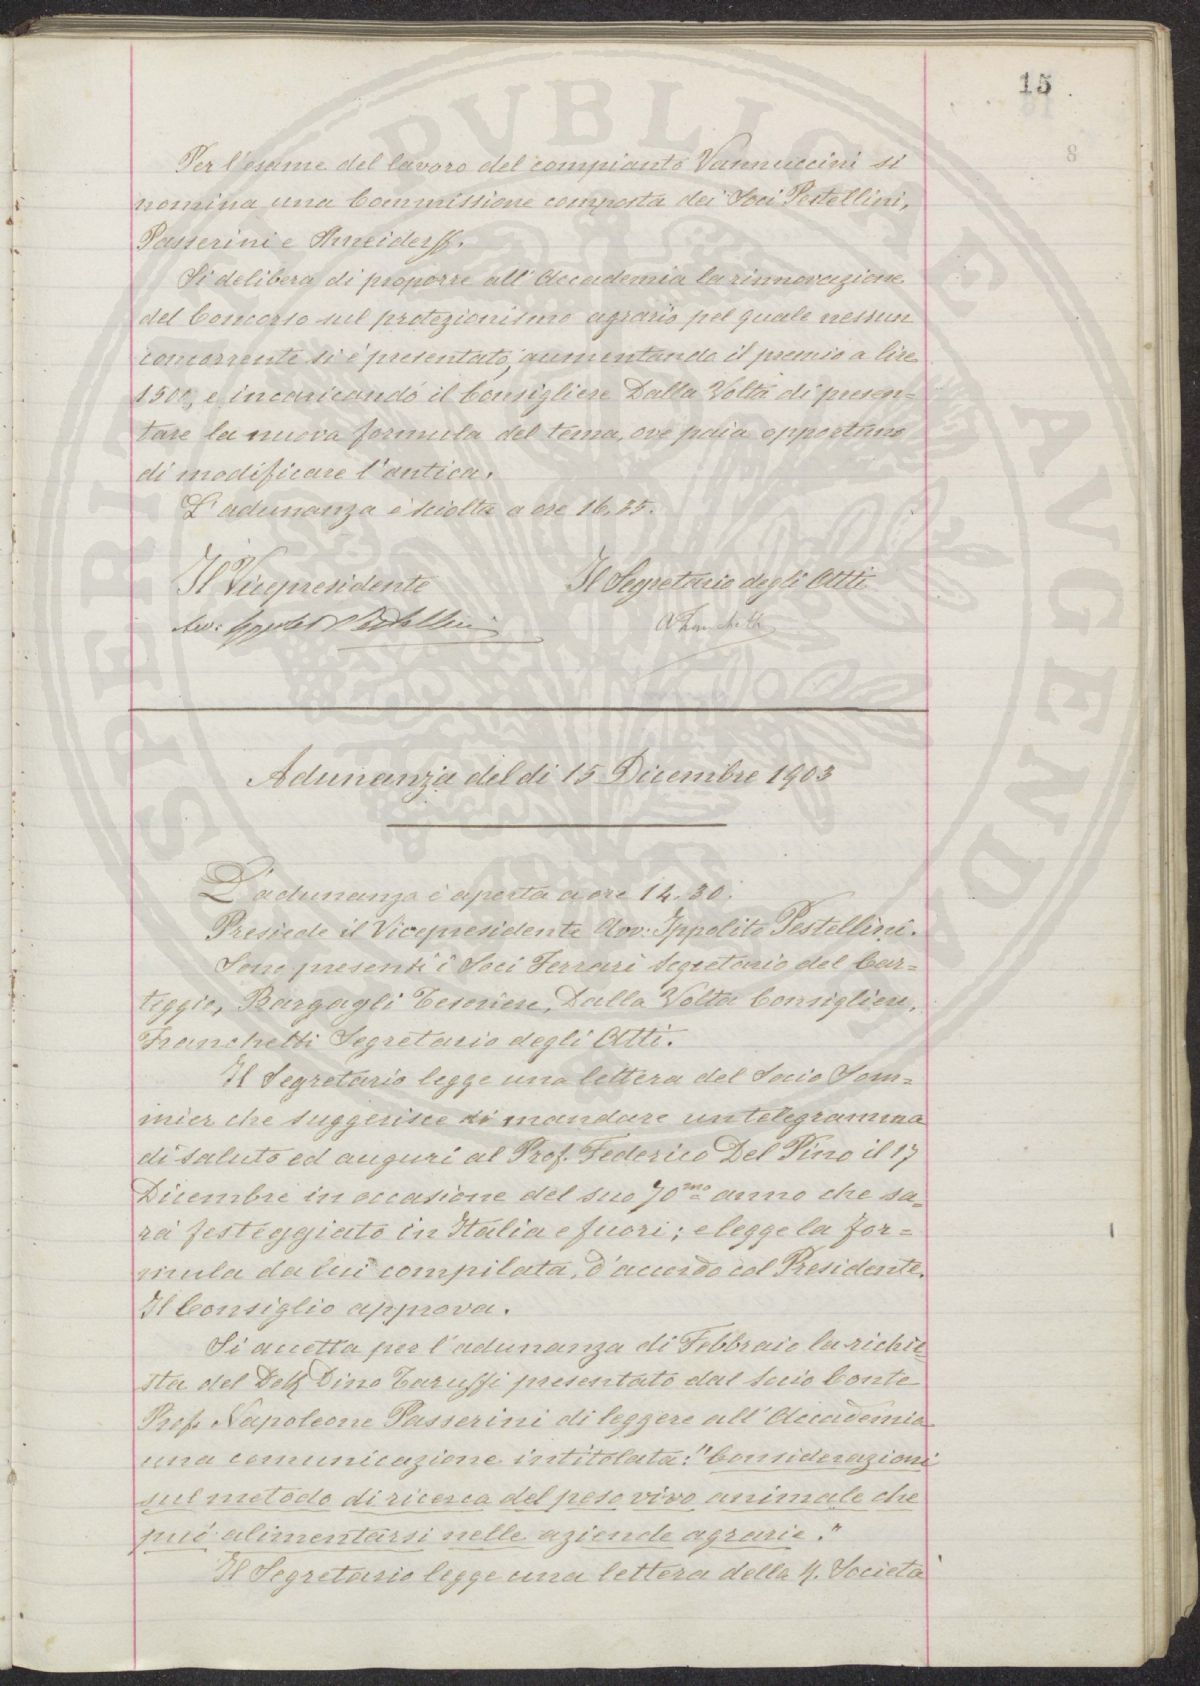 15
8
Per l'esame del lavoro del compianto Vannuccini si
nomina una Commissione composta dei Soci Pestellini,
Passerini e Shneiderff.
Si delibera di proporre all'Accademia la rinnovazione
del Concorso sul protezionismo agrario pel quale nessun
concorrente si è presentato, aumentando il premio a lire
1500, e incaricando il Consigliere Dalla Volta di presen=
tare la nuova formula del tema, ove paia opportuno
di modificare l'antica.
L'adunanza è sciolta a ore 16.35.
Il Vicepresidente Il Segretario degli Atti
Avv: Ippolito Pestellini AFranchetti
Adunanza del di 15 Dicembre 1903
L'adunanza è aperta a ore 14.30.
Presiede il Vicepresidente Avv: Ippolito Pestellini.
Sono presenti i Soci Ferrari Segretario del Car=
teggio, Bargagli Tesoriere, Dalla Volta Consigliere,
Franchetti Segretario degli Atti.
Il Segretario legge una lettera del Socio Som=
mier che suggerisce di mandare un telegramma
di saluto ed auguri al Prof. Federico Del Pino il 17
Dicembre in occasione del suo 70mo anno che sa=
rà festeggiato in Italia e fuori; e legge la for=
mula da lui compilata, d'accordo col Presidente.
Il Consiglio approva.
Si accetta per l'adunanza di Febbraio la richie=
sta del Dott Dino Taruffi presentato dal Socio Conte
Prof. Napoleone Passerini di leggere all'Accademia
una comunicazione intitolata: "Considerazioni
sul metodo di ricerca del peso vivo animale che
può alimentarsi nelle aziende agrarie."
Il Segretario legge una lettera della R. Società
PROSPERITATI PVBLICAE AVGENDAE